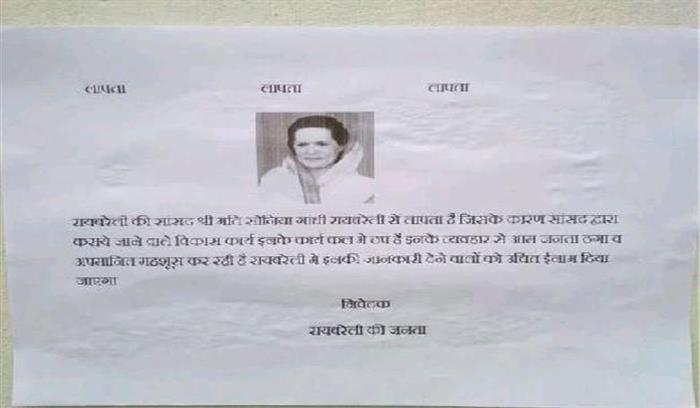 लापता लापता लापता
रायबरेली की सांसद श्री मति सोनिया गांधी रायबरेली से लापता है जिसके कारण सांसद द्वारा
कराये जाने वाले विकास कार्य इनके कार्य काल मे ठप है इनके व्यवहार से आम जनता ठगा व
अपमानित महशूस कर रही है रायबरेली मे इनकी जानकारी देने वालों को उचित ईनाम दिया
जाएगा
निवेदक
रायबरेली की जनता